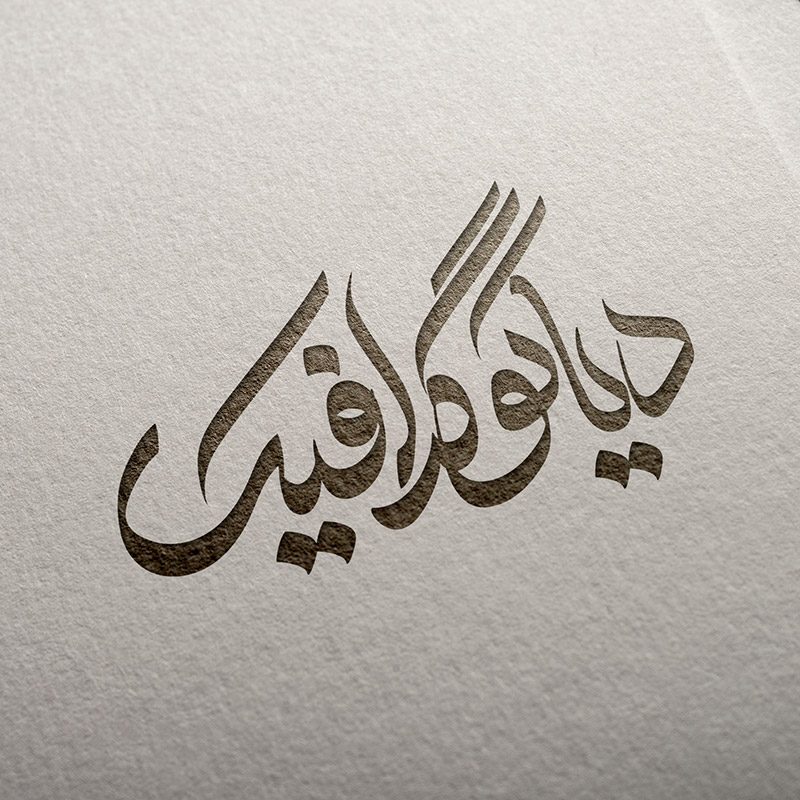 دیاکو گرافیک